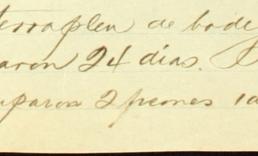 terraplen de bode
aron 24 dias.
uparon 2 peones 1a